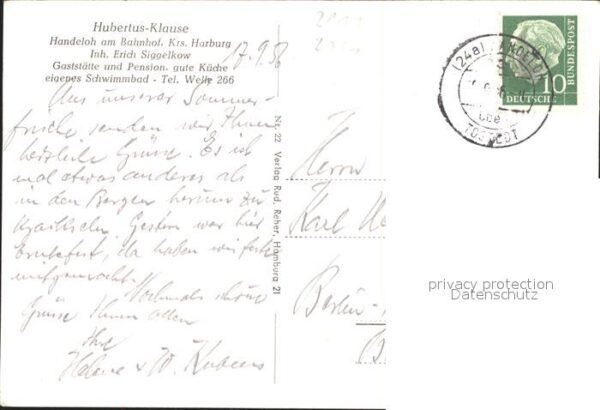 Hubertus-Klause
Handeloh am Bahnhof. Krs. Harburg
Inh. Erich Siggelkow
Gaststätte und Pension. gute Küche
eigenes Schwimmbad - Tel. Welle 266
17.9.56
Aus unserer Sommer-
frische senden wir Ihnen
herzliche Grüsse. Es ist
mal etwas anderes als
in den Bergen herum zu
kraxeln. Gestern war hier
Erntefest, da haben wir feste
mitgemacht.
Nochmals schöne
Grüsse Ihnen allen
Ihre
Helene & W.
Nr. 22 Verlag Rud. Reher, Hamburg 21
Herrn
Karl
Berlin-
(24a)
TOSTEDT
10
DEUTSCHE
BUNDESPOST
privacy protection
Datenschutz